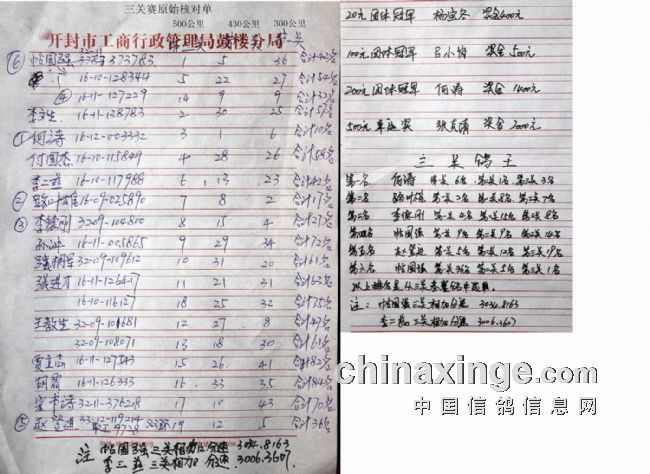 三关赛原始核对单
500公里 430公里 300公里
开封市工商行政管理局鼓楼分局
⑥ 帖国强 373783 1 5 36 合计42名
16-10-128344 5 22 27 合计54名
④ 16-11-127229 14 9 9 合计32名
李 生 16-11-138783 2 30 25 合计57名
① 何涛 16-12-003332 3 1 6 合计10名
付国杰 16-10-115849 4 28 26 合计58名
李二燕 16-10-117988 6 13 23 合计42名
② 16-09-025890 7 8 2 合计17名
③ 李德刚 3209-104810 8 15 4 合计27名
孙冲 16-11-005865 9 29 34 合计72名
32-09-109612 10 31 20 合计61名
张进才 16-11-126427 11 21 31 合计63名
16-10-116127 18 25 32 合计75名
王敬生 32-09-101681 12 27 8 合计47名
32-09-108071 13 18 30 合计61名
贾 16-11-127343 15 26 41 合计82名
胡磊 16-11-126333 16 33 35 合计84名
宋书涛 32-11-376218 17 10 43 合计70名
⑤ 赵 进 33-12-119214 19 12 5 合计36名
注 帖国强三关相加分速 3034.8163
李二燕三关相加分速 3006.3607
20元团体冠军 杨宝冬 奖金400元
100元团体冠军 吕小岗 奖金500元
200元团体冠军 何涛 奖金1400元
500元 奖 张 清 奖金2000元
三关鸽王
第一名 何涛 第一关6名 第二关1名 第三关3名
第二名 第一关2名 第二关8名 第三关7名
第三名 李德刚 第一关4名 第二关15名 第三关8名
第四名 帖国强 第一关9名 第二关9名 第三关14名
第五名 赵 进 第一关5名 第二关12名 第三关19名
第六名 帖国强 第一关36名 第二关5名 第三关1名
注: 帖国强三关相加分速 3034.8163
李二燕三关相加分速 3006.3607
chinaxinge.com
中国信鸽信息网